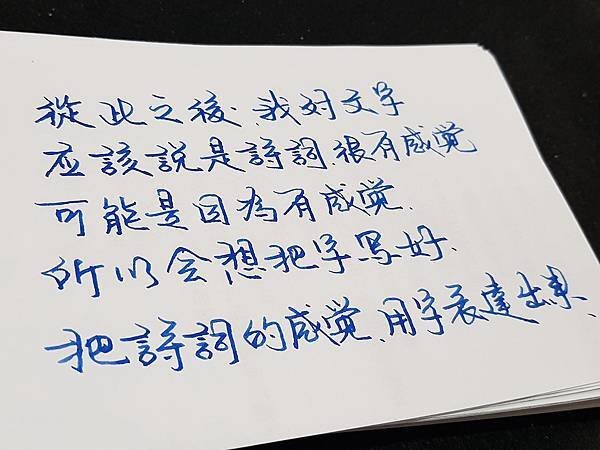 從此之後.我对文字
应該説是詩詞.很有感觉
可能是因為有感觉.
所以会想把字写好.
把詩詞的感觉.用字表達出來.